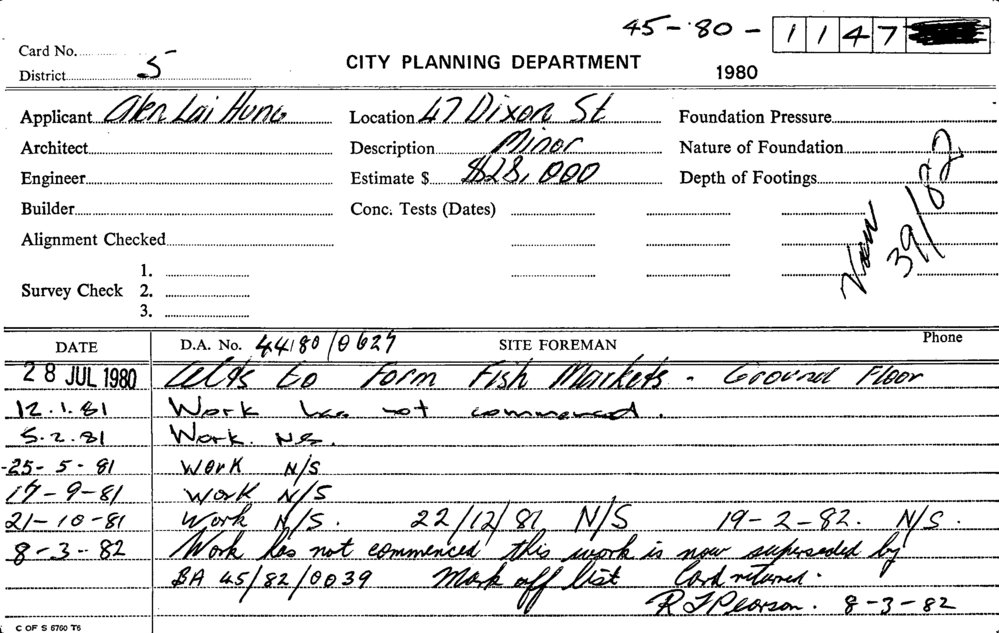 45-80- 1147
Card No.
District 5
CITY PLANNING DEPARTMENT
1980
Applicant Alen Lai Hung Location 47 Dixon St Foundation Pressure
Architect Description Minor Nature of Foundation
Engineer Estimate $ $28,000 Depth of Footings
Builder Conc. Tests (Dates)
Alignment Checked
Now 39/82
Survey Check 1.
2.
3.
DATE D.A. No. 44/80/0627 SITE FOREMAN Phone
28 JUL 1980 Alts to Form Fish Markets - Ground Floor
12.1.81 Work has not commenced.
5.2.81 Work N.S.
-25-5-81 WORK N/S
17-9-81 Work N/S
21-10-81 Work N/S. 22/12/81 N/S 19-2-82. N/S.
8-3-82 Work has not commenced this work is now superseded by
BA 45/82/0039 Mark off list Card returned.
R J Pearson. 8-3-82
C OF S 6760 T6